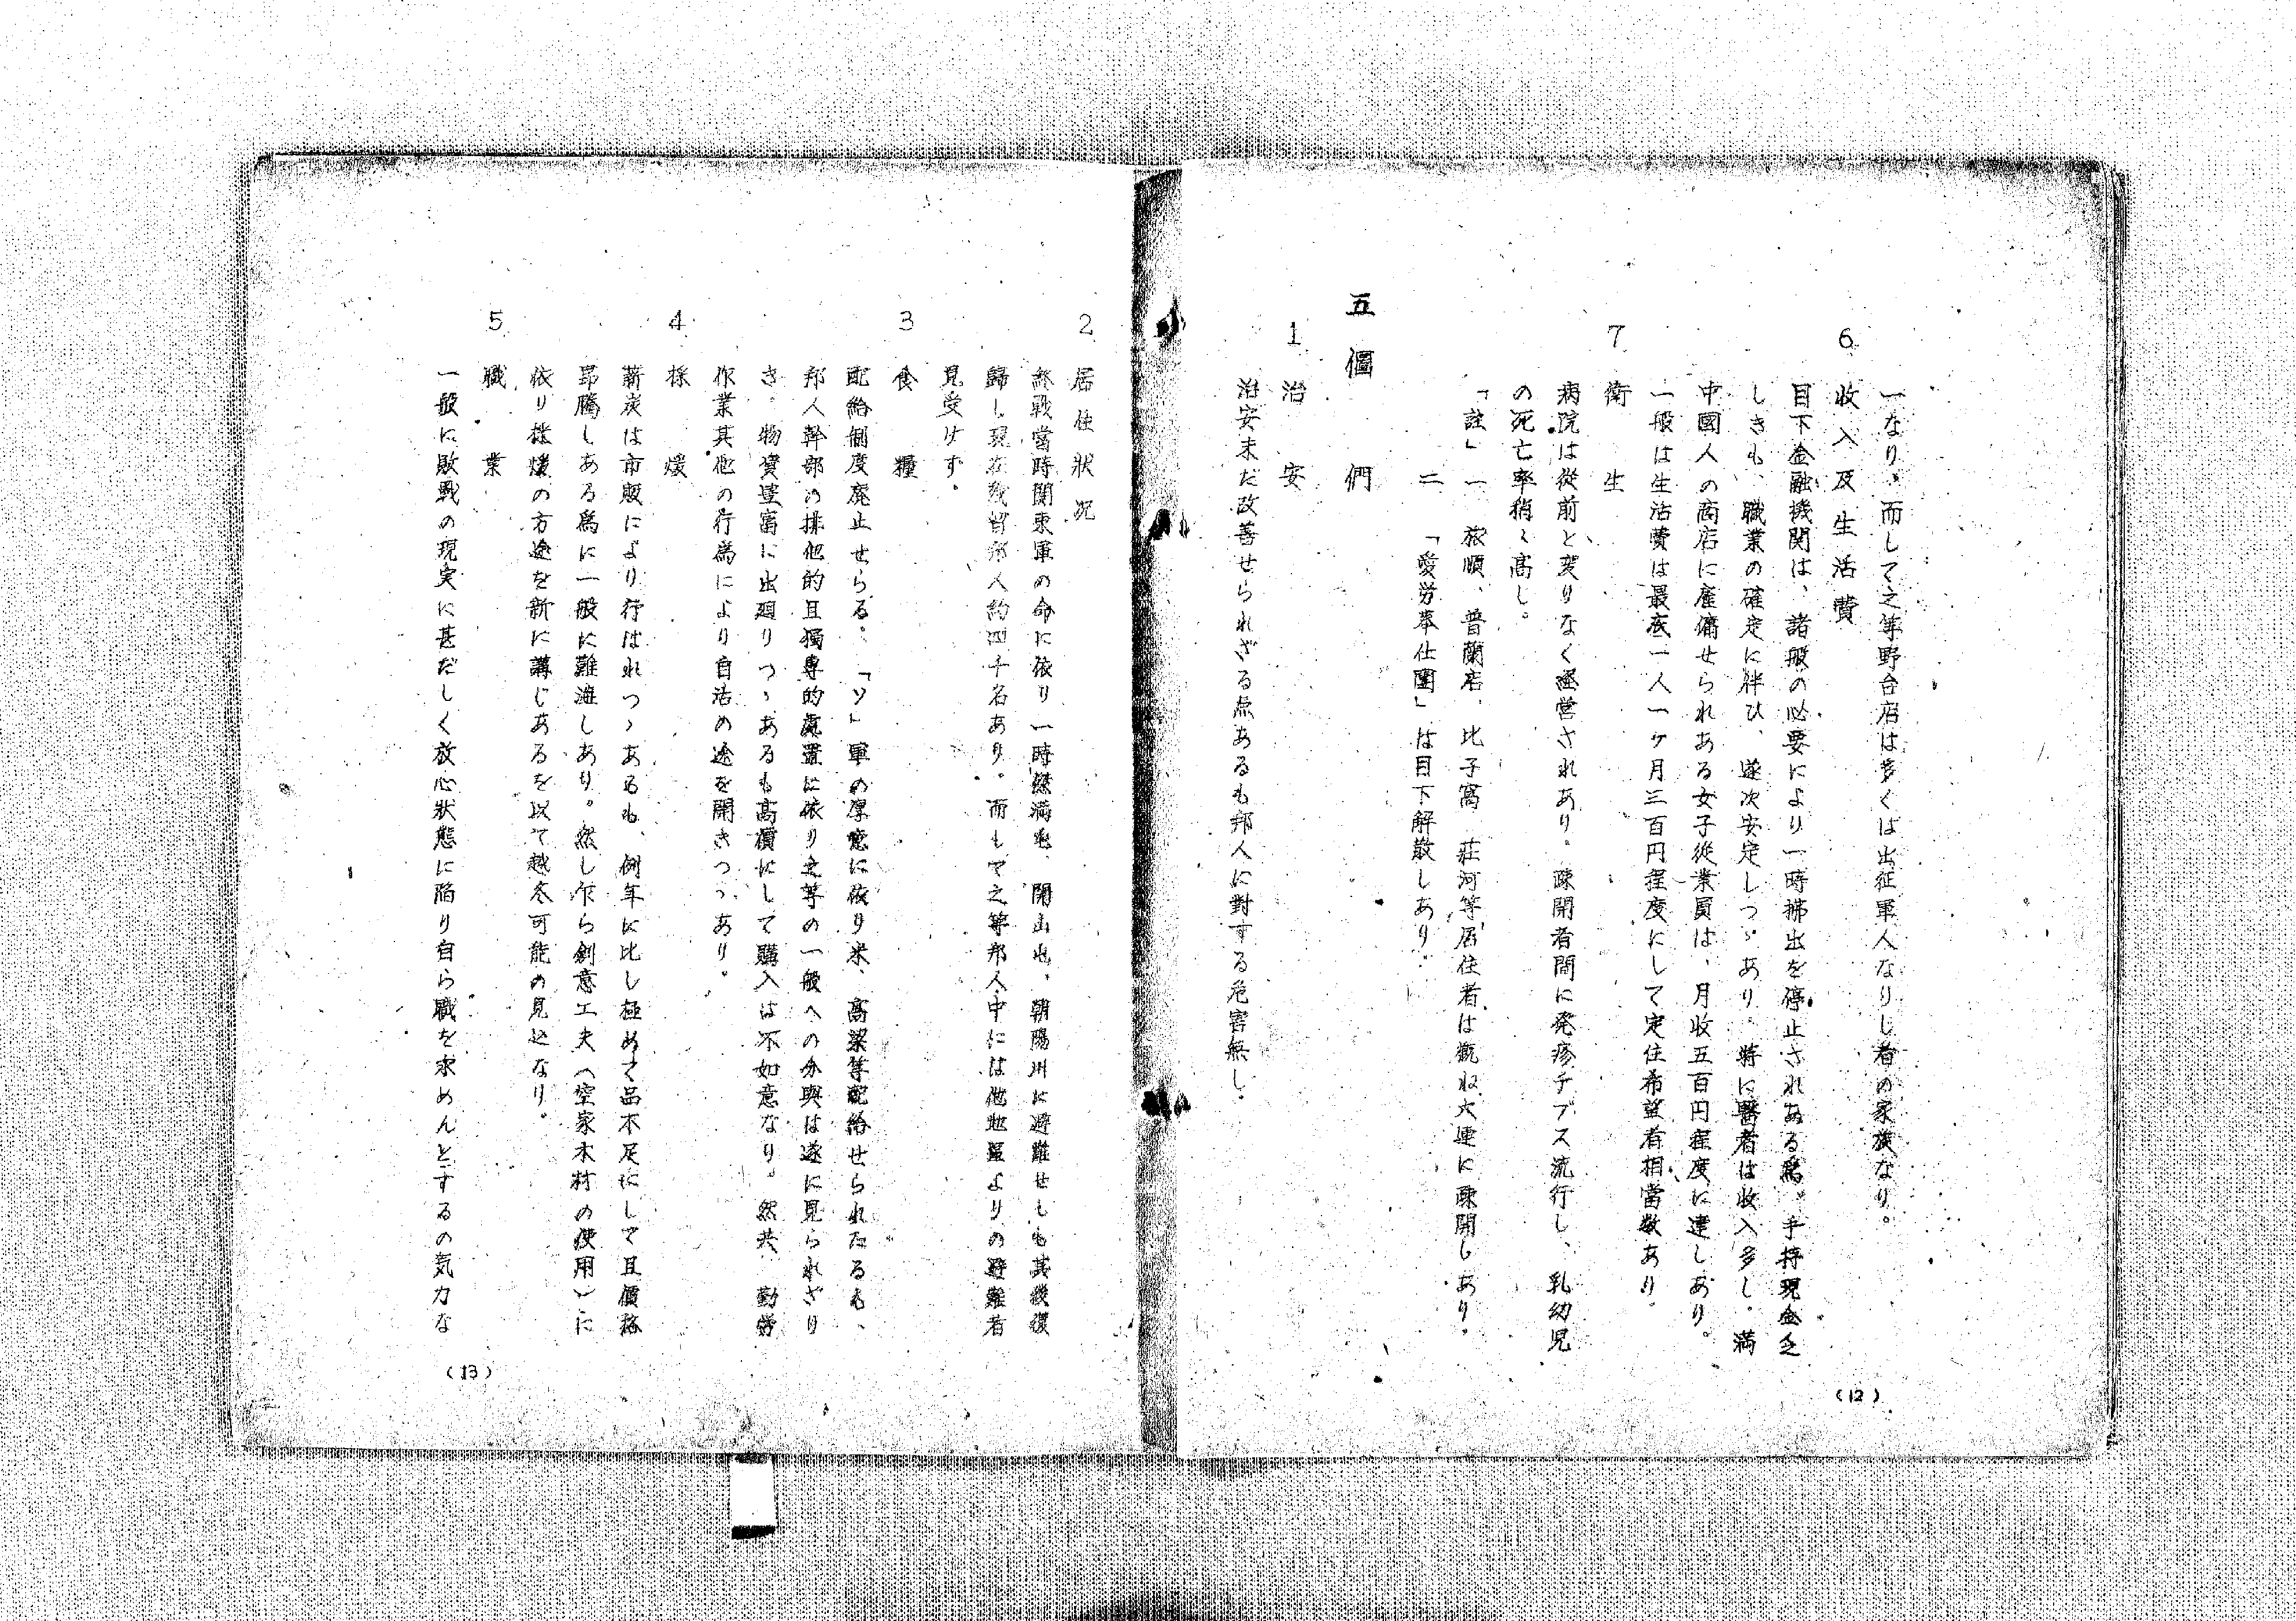 一なり。而して之等野台店は多くは出征軍人なりし者の家族なり。
6 收入及生活費
目下金融機関は、諸般の必要により一時拂出を停止されある爲。手持現金乏
しきも、職業の確定に伴ひ、遂次安定しつゝあり。特に醫者は收入多し。満
中國人の商店に雇傭せられある女子従業員は、月收五百円程度に達しあり。
一般は生活費は最底一人一ヶ月三百円程度にして定住希望者相當数あり。
7 衛生
病院は從前と変りなく経営されあり。疎開者間に発疹チブス流行し、乳幼児
の死亡率稍々高し。
「註」一 旅順、普蘭店、比子窩 荘河等居住者は概ね大連に疎開しあり。
二 「愛労奉仕團」は目下解散しあり。
五 們
1 治安
治安未だ改善せられざる点あるも邦人に對する危害無し。
(12)
2 居住状况
終戰當時関東軍の命に依り一時 満 、開山屯、朝陽川に避難せしも其後復
歸し現在残留邦人約四千名あり。而して之等邦人中には他地區よりの避難者
見受けす。
3 食糧
配給制度廃止せらる。「ソ」軍の厚意に依り米、高粱等配給せられたるも、
邦人幹部の排他的且獨専的處置に依り之等の一般への分與は遂に見られざり
き。物資豊富に出廻りつゝあるも高價にして購入は不如意なり。然共、勤労
作業其他の行爲により自活の途を開きつゝあり。
4 採煖
薪炭は市販により行はれつゝあるも、例年に比し極めて品不足にして且價格
昂騰しある爲に一般に難澁しあり。然し乍ら創意工夫(空家木材の使用)に
依り採煖の方途を新に講じあるを以て越冬可能の見込なり。
5 職業
一般に敗戦の現実に甚だしく放心狀態に陥り自ら職を求めんとするの気力な
(13)